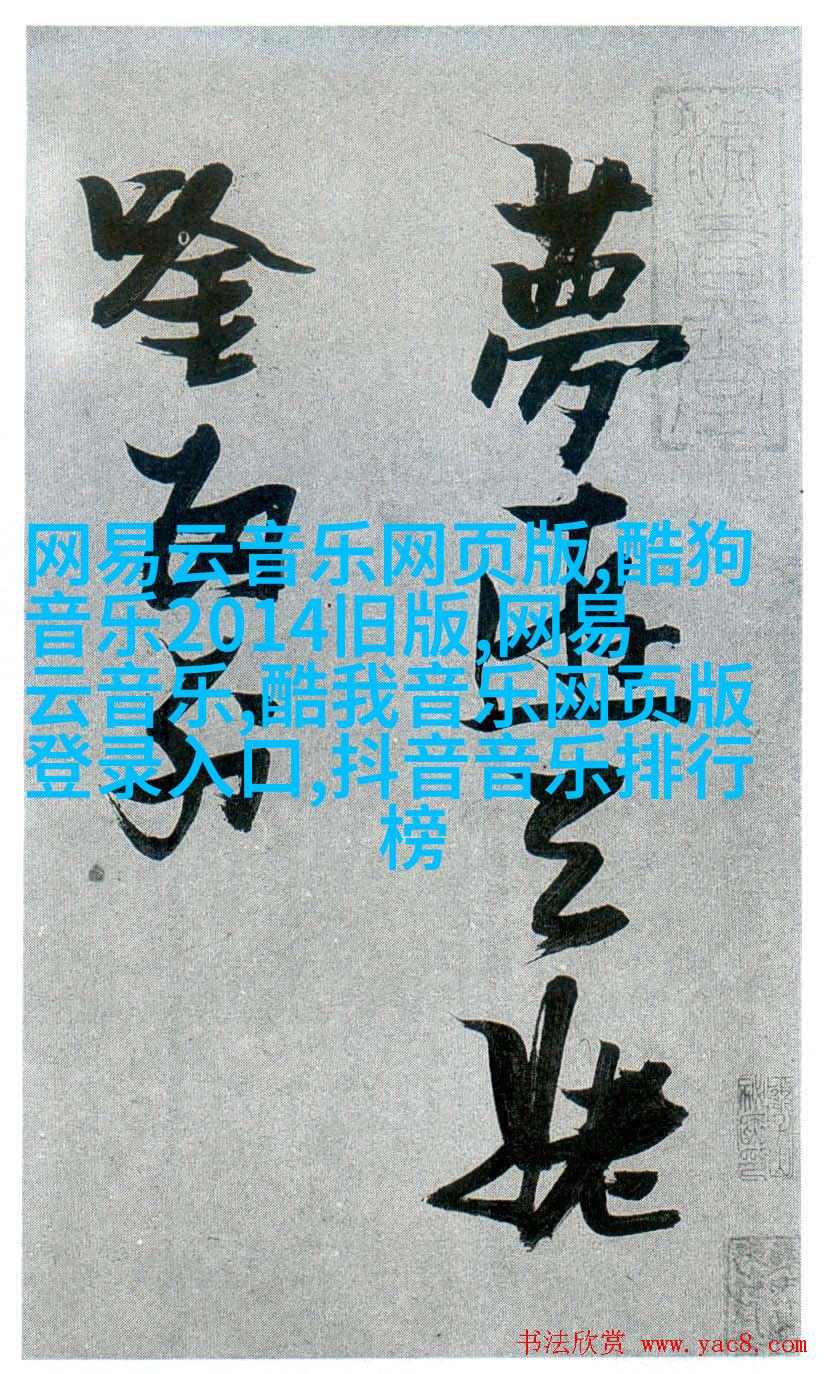 夢遊天姥
唫留别
网易云音乐网页版,酷狗
音乐2014旧版,网易
云音乐,酷我音乐网页版
登录入口,抖音音乐排行
榜
书法欣赏 www.yac8.com